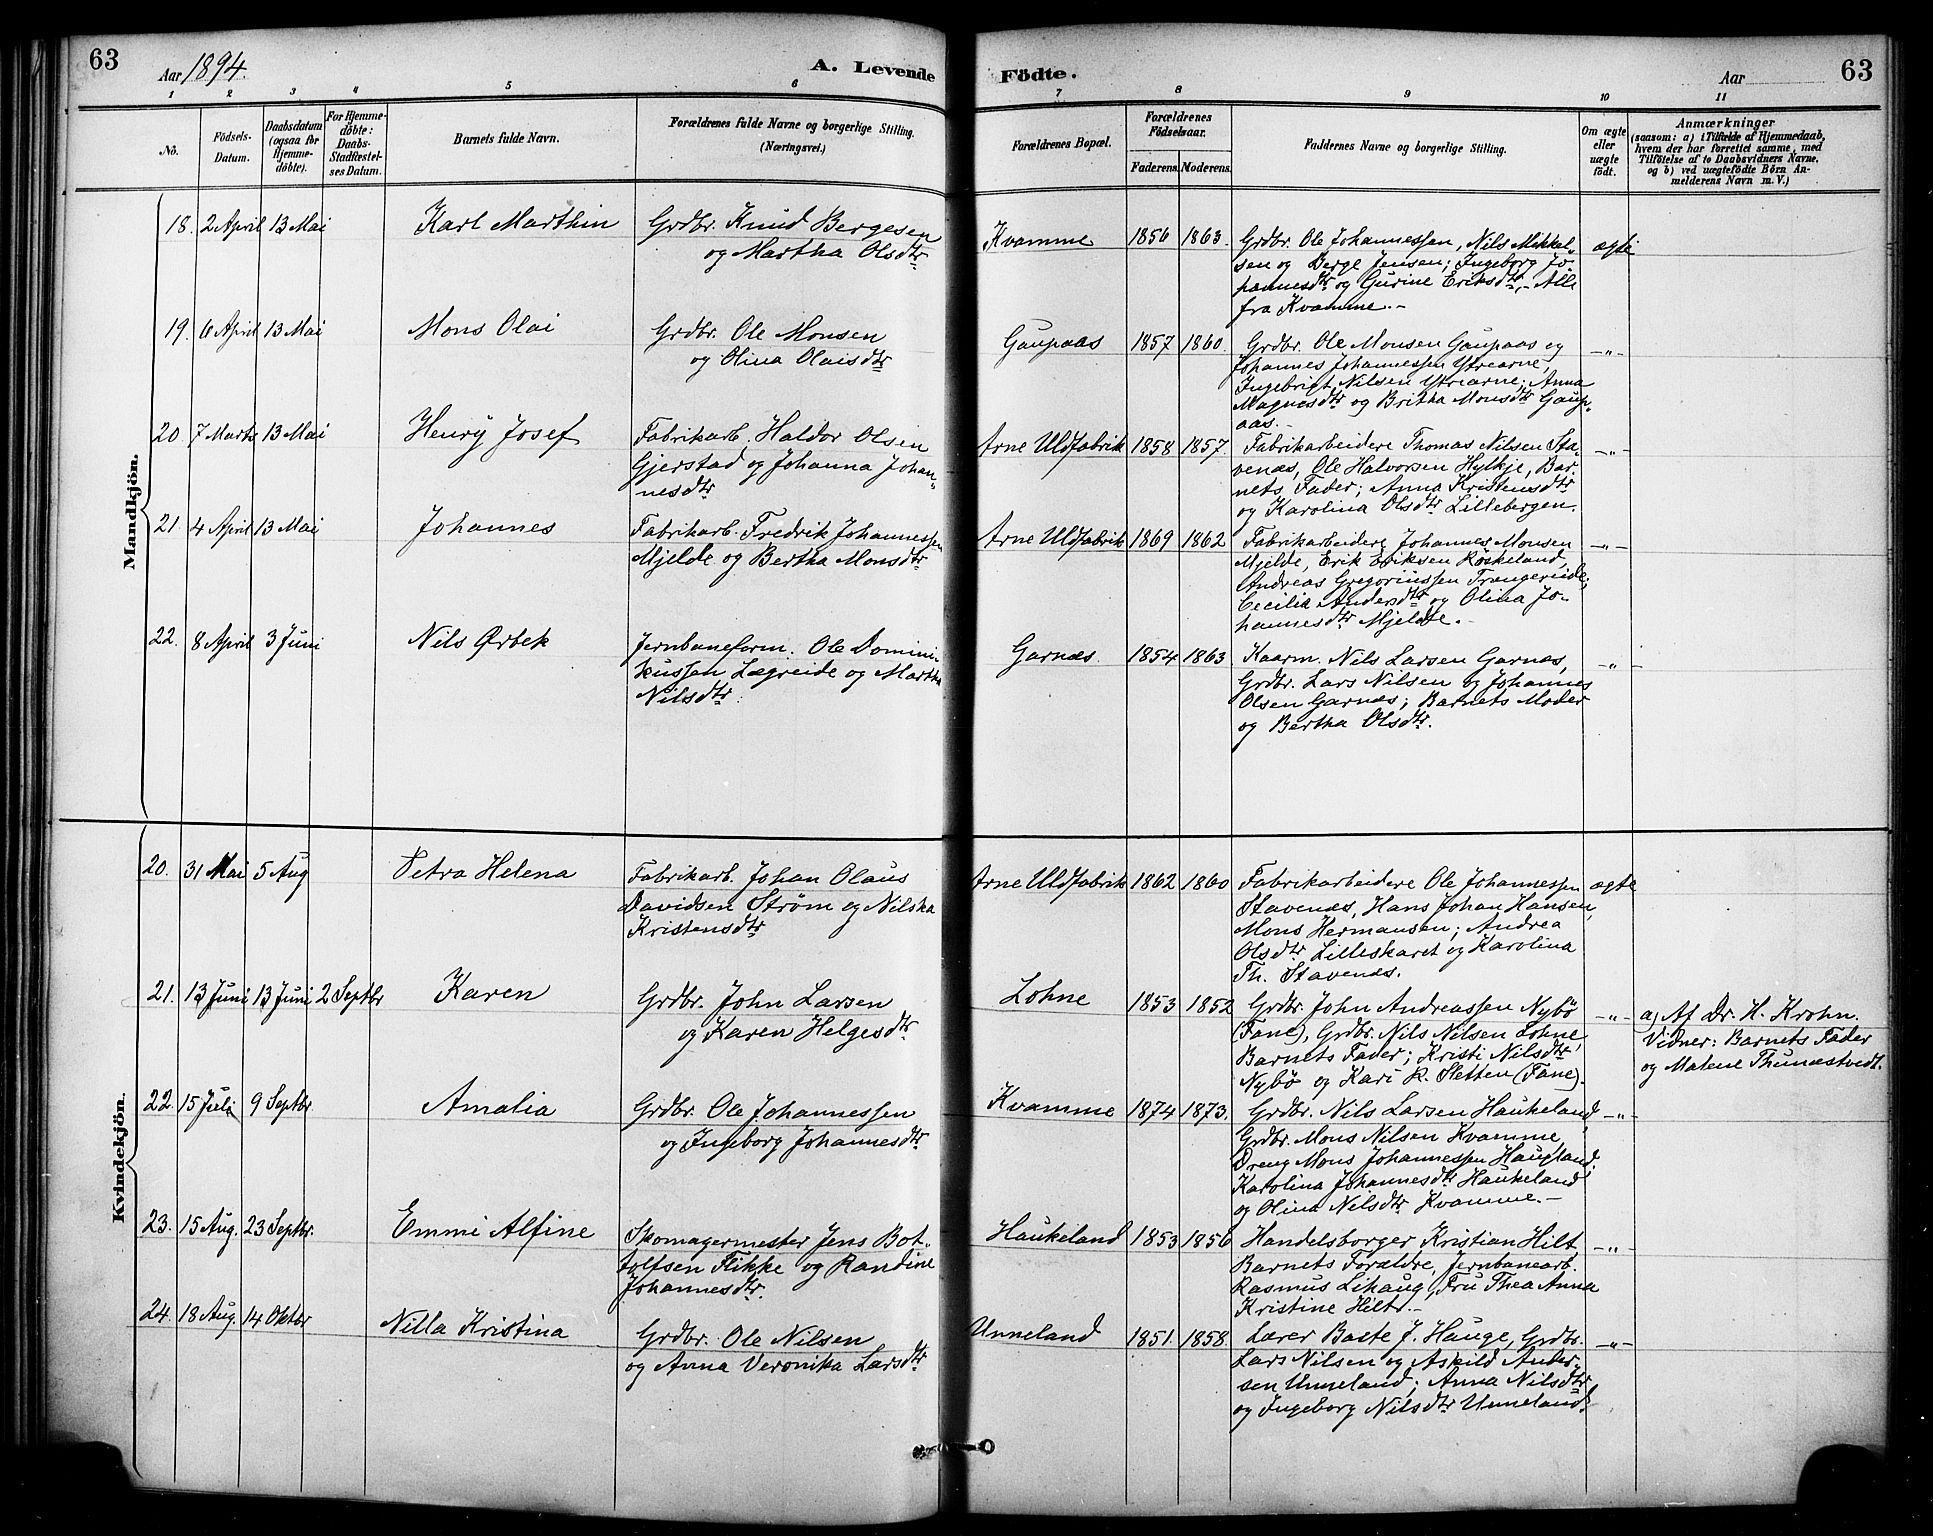 63
Aar 1894.
A. Levende
Födte.
Aar
63
1 2 3 4 5 6 7 8 9 10 11
Nö.
Födsels-
Datum.
Daabsdatum
(ogsaa for
Hjemme-
döbte).
For Hjemme-
döbte:
Daabs-
Stadfæstel-
ses Datum.
Barnets fulde Navn.
Forældrenes fulde Navne og borgerlige Stilling.
(Næringsvei.)
Forældrenes Bopæl.
Forældrenes
Födselsaar.
Faderens. Moderens.
Faddernes Navne og borgerlige Stilling.
Om ægte
eller
uægte
födt.
Anmærkninger
(saasom: a) i Tilfælde af Hjemmedaab,
hvem der har forrettet samme, med
Tilföielse af to Daabsvidners Navne,
og b) ved uægtefödte Börn An-
melderens Navn m. V.)
Mandkjön.
18. 2 April 13 Mai
Karl Marthin
Grdbr. Knud Bergesen
og Martha Olsdtr
Kvamme
1856 1863.
Grdbr. Ole Johannessen, Nils Mikkel-
sen og Berge Jensen; Ingeborg Jo-
hannesdtr og Gurine Eriksdtr, - Alle
fra Kvamme. -
ægte
19. 6 April 13 Mai
Mons Olai
Grdbr. Ole Monsen
og Olina Olaisdtr
Gaupaas
1857 1860.
Grdbr. Ole Monsen Gaupaas og
Johannes Johannessen Ytrearne,
Ingebrigt Nilsen Ytrearne; Anna
Magnesdtr og Britha Monsdtr Gaup-
aas. -
- " -
20. 7 Marts 13 Mai
Henry Josef
Fabrikarb. Haldor Olsen
Gjerstad og Johanna Johan-
nesdtr
Arne Uldfabrik
1858 1857.
Fabrikarbeidere Thomas Nilsen Sta-
venæs, Ole Halvorsen Hylkje, Bar-
nets Fader; Anna Kristensdtr
og Karolina Olsdtr Lillebergen.
- " -
21. 4 April 13 Mai
Johannes
Fabrikarb. Fredrik Johannessen
Mjelde og Bertha Monsdtr
Arne Uldfabrik
1869 1862
Fabrikarbeidere Johannes Monsen
Mjelde, Erik Eriksen Röikeland,
Andreas Gregoriussen Trengereide;
Cecilia Andersdtr og Olina Jo-
hannesdtr Mjelde. -
- " -
22. 8 April 3 Juni
Nils Ørbek
Jernbaneform. Ole Domini-
kussen Lægreide og Martha
Nilsdtr.
Garnæs.
1854 1863
Kaarm. Nils Larsen Garnæs,
Grdbr. Lars Nilsen og Johannes
Olsen Garnæs; Barnets Moder
og Bertha Olsdtr.
- " -
Kvindekjön.
20. 31 Mai 5 Aug
Petra Helena
Fabrikarb. Johan Olaus
Davidsen Strøm og Nilska
Kristensdtr
Arne Uldfabrik
1862 1860
Fabrikarbeidere Ole Johannessen
Stavenæs, Hans Johan Hansen,
Mons Hermansen; Andrea
Olsdtr Lilleskaret og Karolina
Th. Stavenæs.
ægte
21. 13 Juni 13 Juni 2 Septbr
Karen
Grdbr. John Larsen
og Karen Helgesdtr
Lohne
1853 1852
Grdbr. John Andreassen Nybö
(Fane), Grdbr. Nils Nilsen Lohne,
Barnets Fader; Kristi Nilsdtr
Nybö og Kari R. Sletten (Fane).
- " -
a) Af Dr. H. Krohn.
Vidner: Barnets Fader
og Malene Thunæstvedt.
22. 15 Juli 9 Septbr.
Amalia
Grdbr. Ole Johannessen
og Ingeborg Johannesdtr
Kvamme
1874 1873.
Grdbr. Nils Larsen Haukeland
Grdbr. Mons Nilsen Kvamme,
Dreng Mons Johannessen Haugland;
Karolina Johannesdtr Haukeland
og Olina Nilsdtr Kvamme. -
- " -
23. 15 Aug. 23 Septbr.
Emmi Alfine
Skomagermester Jens Bot-
tolfsen Flikke og Randine
Johannesdtr.
Haukeland
1853 1856
Handelsborger Kristian Hilt,
Barnets Forældre, Jernbanearb.
Rasmus Lihaug, Fru Thea Anna
Kristine Hilt. -
- " -
24. 18 Aug. 14 Oktbr
Nilla Kristina
Grdbr. Ole Nilsen
og Anna Veronika Larsdtr
Unneland
1851. 1858.
Lærer Baste J. Hauge, Grdbr.
Lars Nilsen og Askild Ander-
sen Unneland; Anna Nilsdtr
og Ingeborg Nilsdtr Unneland.
- " -